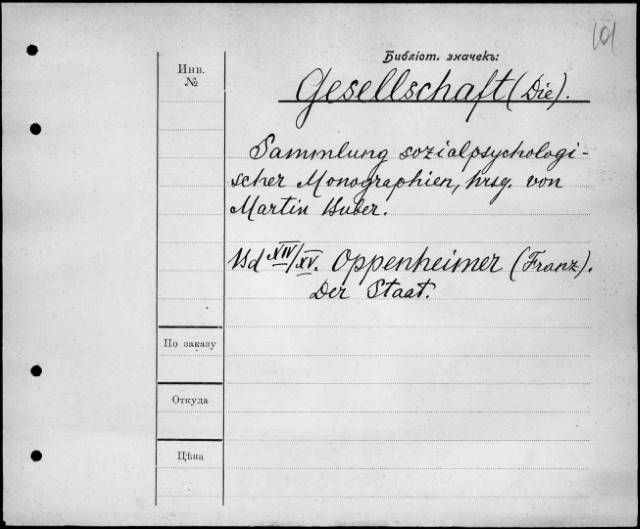 101
Библіот. значекъ:
Инв.
№
Gesellschaft (Die).
Sammlung sozialpsychologi-
scher Monographien, hrsg. von
Martin Buber.
Bd XIV/XV. Oppenheimer (Franz).
Der Staat.
По заказу
Откуда
Цѣна